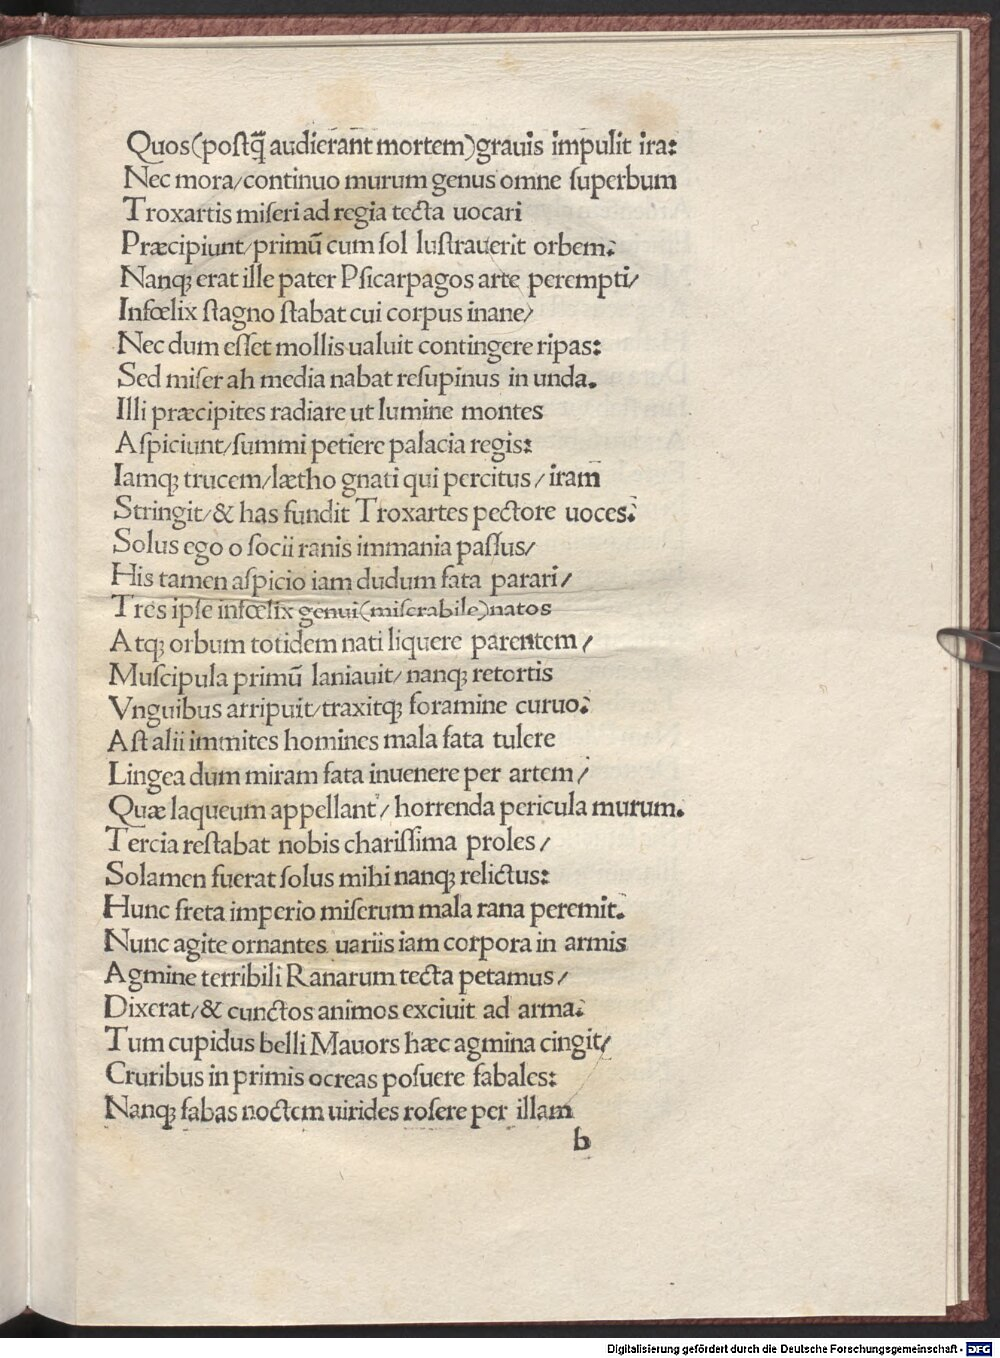 Quos(poſtq̃ audierant mortem)grauis impulit ira:
Nec mora/continuo murum genus omne ſuperbum
Troxartis miſeri ad regia tecta uocari
Præcipiunt/primū cum ſol luſtrauerit orbem.
Nanq; erat ille pater Pſicarpagos arte perempti/
Infœlix ſtagno ſtabat cui corpus inane/
Nec dum eſſet mollis ualuit contingere ripas:
Sed miſer ah media nabat reſupinus in unda.
Illi præcipites radiare ut lumine montes
Aſpiciunt/ſummi petiere palacia regis:
Iamq; trucem/lætho gnati qui percitus/iram
Stringit/& has fundit Troxartes pectore uoces.
Solus ego o ſocii ranis immania paſſus/
His tamen aſpicio iam dudum fata parari/
Tres ipſe infœlix genui(miſerabile)natos
Atq; orbum totidem nati liquere parentem/
Muſcipula primū laniauit/nanq; retortis
Vnguibus arripuit/traxitq; foramine curuo.
Aſt alii immites homines mala fata tulere
Lingea dum miram fata inuenere per artem/
Quæ laqueum appellant/horrenda pericula murum.
Tercia reſtabat nobis chariſſima proles/
Solamen fuerat ſolus mihi nanq; relictus:
Hunc freta imperio miſerum mala rana peremit.
Nunc agite ornantes uariis iam corpora in armis
Agmine terribili Ranarum tecta petamus/
Dixerat/& cunctos animos exciuit ad arma.
Tum cupidus belli Mauors hæc agmina cingit/
Cruribus in primis ocreas poſuere fabales:
Nanq; fabas noctem uirides roſere per illam
b
Digitalisierung gefördert durch die Deutsche Forschungsgemeinschaft - DFG